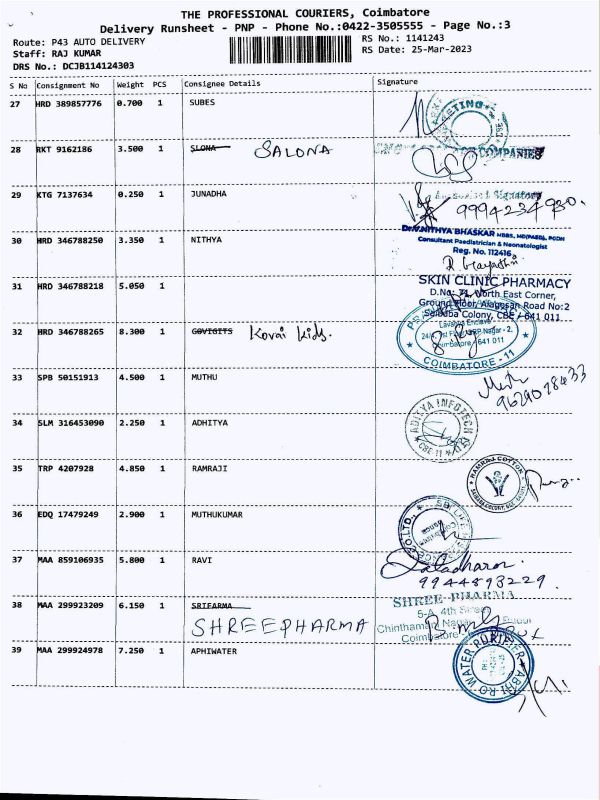 THE PROFESSIONAL COURIERS, Coimbatore
Delivery Runsheet - PNP - Phone No.:0422-3505555 - Page No.:3
Route: P43 AUTO DELIVERY
Staff: RAJ KUMAR
DRS No.: DCJB114124303
RS No.: 1141243
RS Date: 25-Mar-2023
S No Consignment No Weight PCS Consignee Details Signature
27 HRD 389857776 0.700 1 SUBES
28 RKT 9162186 3.500 1 SLONA SALONA
COMPANIES
29 KTG 7137634 0.250 1 JUNADHA
Authorised Signatory
9994234930.
30 HRD 346788250 3.350 1 NITHYA
Dr.V.NITHYA BHASKAR MBBS, MD(PAED), PGDN
Consultant Paediatrician & Neonatologist
Reg. No. 112416
31 HRD 346788218 5.050 1
SKIN CLINIC PHARMACY
D.No: 71, North East Corner,
Ground Floor, Alagesan Road No:2
Saibaba Colony, CBE - 641 011
32 HRD 346788265 8.300 1 GOVIGITS Kovai Kids.
Lavanya Enclave
Coimbatore - 641 011
COIMBATORE - 11
33 SPB 50151913 4.500 1 MUTHU
9629078433
34 SLM 316453090 2.250 1 ADHITYA
ADITYA INFOTECH
CBE 11
35 TRP 4207928 4.850 1 RAMRAJI
RAMRAJ COTTON
36 EDQ 17479249 2.900 1 MUTHUKUMAR
37 MAA 859106935 5.800 1 RAVI
9944893229.
38 MAA 299923209 6.150 1 SRIFARMA
SHREEPHARMA
SHREE PHARMA
5-A, 4th Street
Chinthamani Nagar
Coimbatore
39 MAA 299924978 7.250 1 APHIWATER
ABHI RO WATER PURIFIER